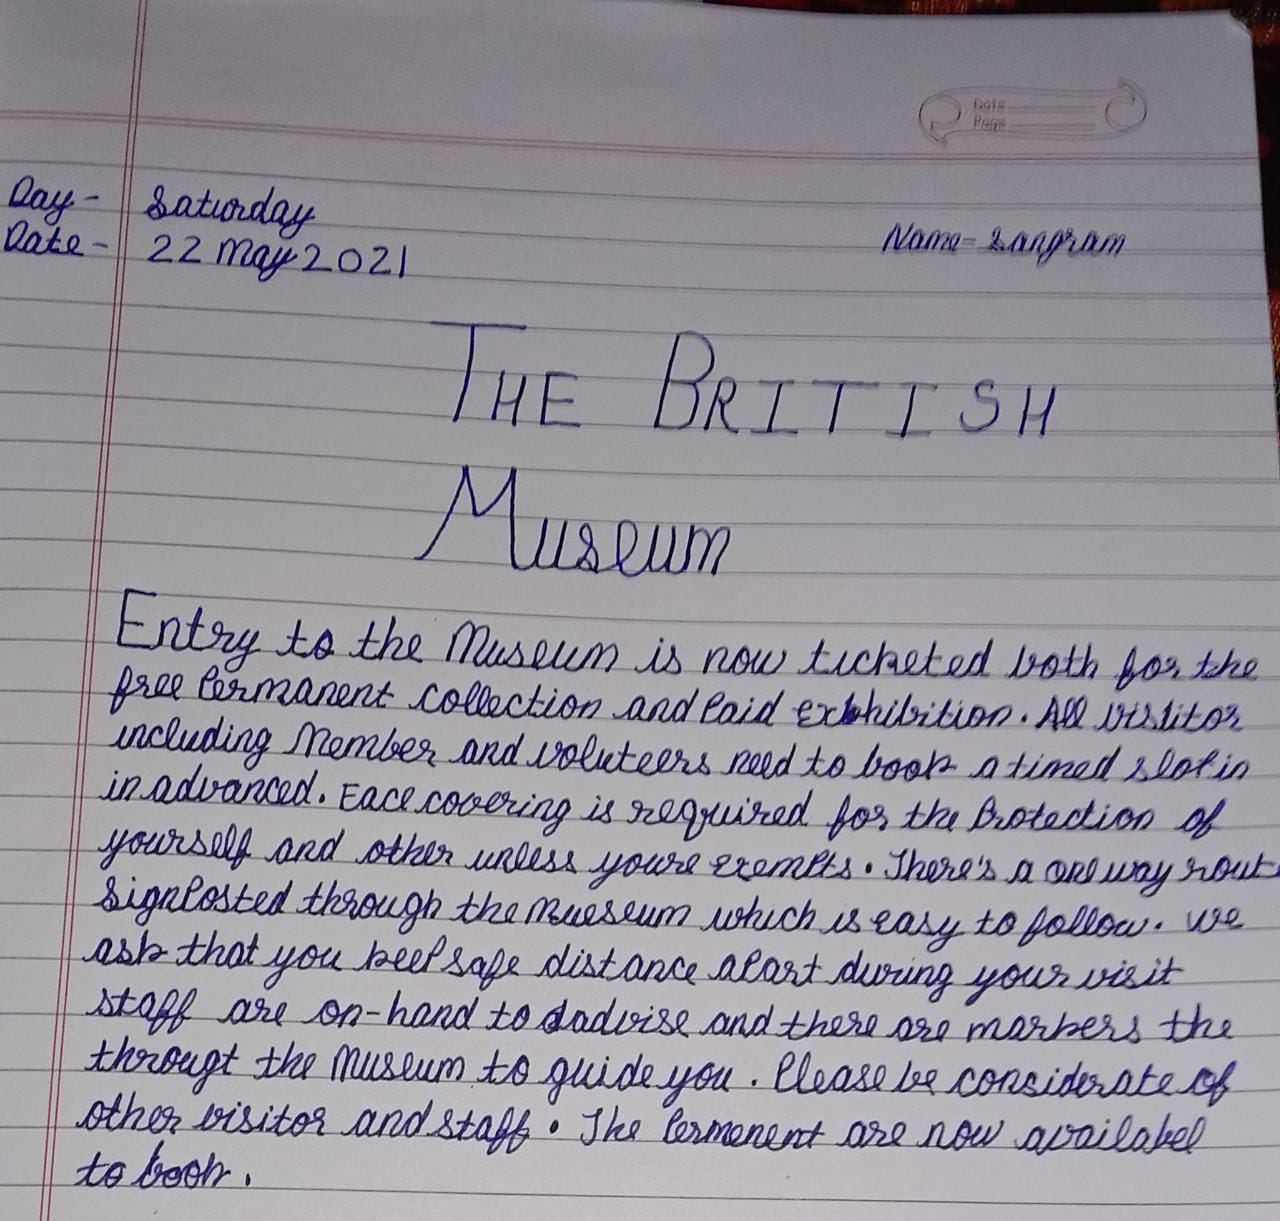 Date
Page
Day- Saturday
Date- 22 May 2021
Name- Sangram
THE BRITISH
Museum
Entry to the Museum is now ticheted both for the
free Permanent collection and Paid exbhibition. All visitor
including Member and voluteers need to book a timed slot in
in advanced. Face covering is required for the Protection of
yourself and other unless youre exempts. There's a one way rout
SignPosted through the Mueseum which is easy to follow. We
ask that you keep safe distance apart during your visit
staff are on-hand to dadvise and there are markers the
througt the Museum to guide you. Please be considerate of
other visitor and staff. The Permenent are now availabel
to book.